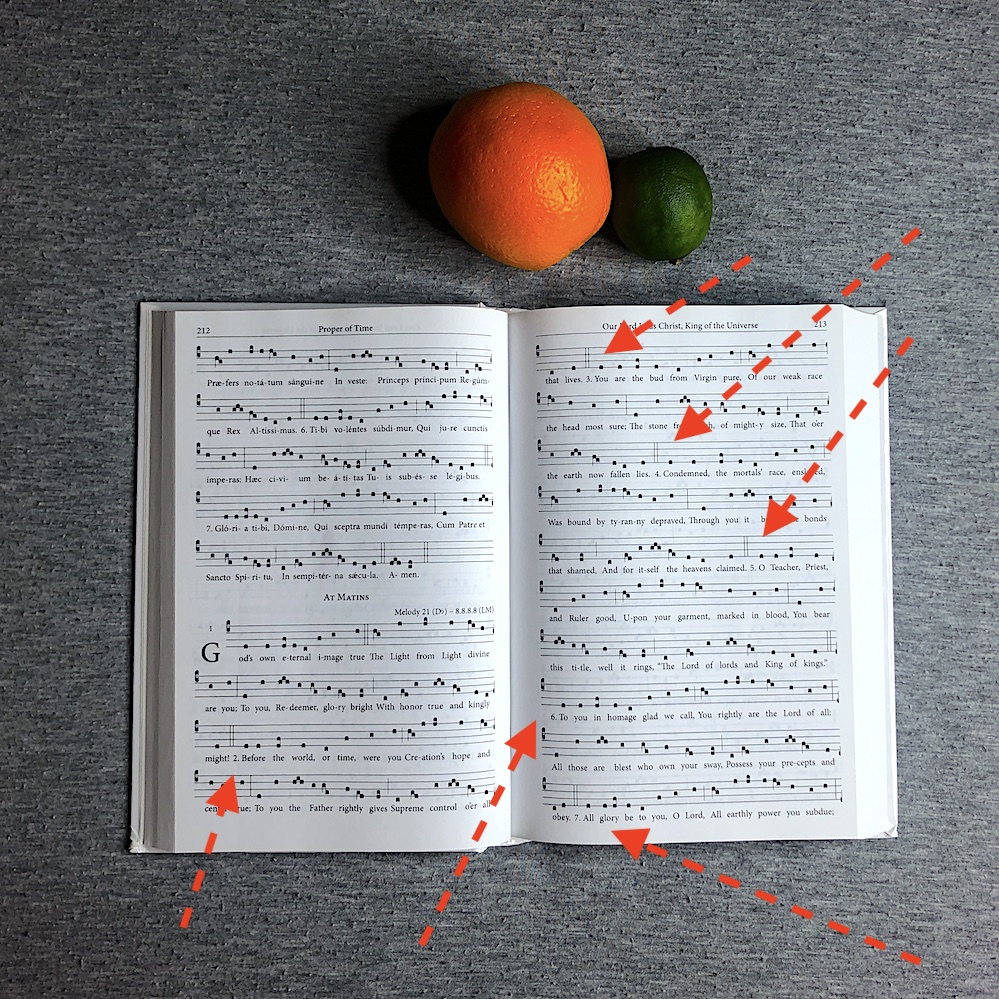 212
Proper of Time
Præ-fers no-tá-tum sángui-ne In veste: Princeps princí-pum Re-gúm-
que Rex Al-tíssi-mus. 6. Ti-bi vo-léntes súbdi-mur, Qui ju-re cunctis
ímpe-ras: Hæc cí-vi- um be- á-ti-tas Tu- is sub-és- se lé-gi-bus.
7. Gló-ri- a ti-bi, Dómi-ne, Qui sceptra mundi témpe-ras, Cum Patre et
Sancto Spí-ri-tu, In sempi-tér-na sǽcu-la. A-men.
At Matins
Melody 21 (D♭) – 8.8.8.8 (LM)
1
God's own e-ternal i-mage true The Light from Light divine
are you; To you, Re-deemer, glo-ry bright With honor true and kingly
might! 2. Before the world, or time, were you Cre-ation's hope and
To you the Father rightly gives Supreme control o'er all
Our Christ, King of the Universe
213
that lives. 3. You are the bud from Virgin pure, Of our weak race
the head most sure; The stone of might-y size, That o'er
the earth now fallen lies. 4. Condemned, the mortals' race, enslaved,
Was bound by ty-ran-ny depraved, Through you it bonds
that shamed, And for it-self the heavens claimed. 5. O Teacher, Priest,
and Ruler good, U-pon your garment, marked in blood, You bear
this ti-tle, well it rings, "The Lord of lords and King of kings."
6. To you in homage glad we call, You rightly are the Lord of all:
All those are blest who own your sway, Possess your pre-cepts and
obey. 7. All glory be to you, O Lord, All earthly power you subdue;